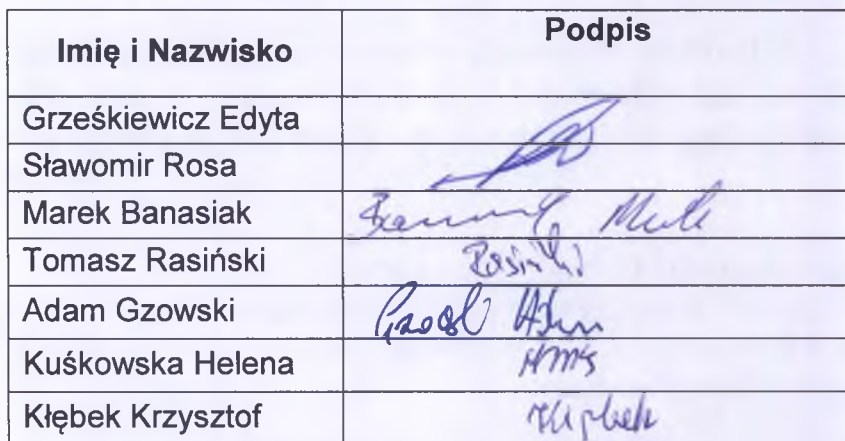 Imię i Nazwisko Podpis
Grześkiewicz Edyta
Sławomir Rosa
Marek Banasiak
Tomasz Rasiński Rasiński
Adam Gzowski
Kuśkowska Helena
Kłębek Krzysztof Kłębek